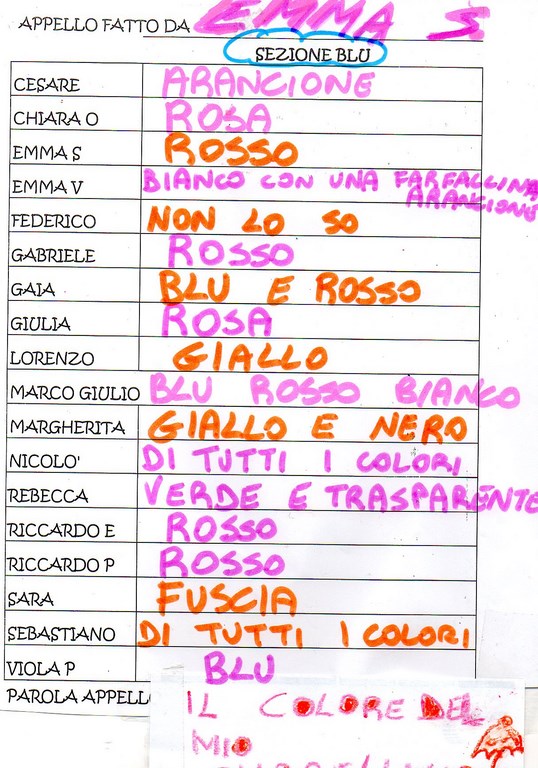 APPELLO FATTO DA EMMA S
SEZIONE BLU
CESARE ARANCIONE
CHIARA O ROSA
EMMA S ROSSO
EMMA V BIANCO CON UNA FARFALLINA
ARANCIONE
FEDERICO NON LO SO
GABRIELE ROSSO
GAIA BLU E ROSSO
GIULIA ROSA
LORENZO GIALLO
MARCO GIULIO BLU ROSSO BIANCO
MARGHERITA GIALLO E NERO
NICOLO' DI TUTTI I COLORI
REBECCA VERDE E TRASPARENTE
RICCARDO E ROSSO
RICCARDO P ROSSO
SARA FUSCIA
SEBASTIANO DI TUTTI I COLORI
VIOLA P BLU
PAROLA APPELLO IL COLORE DEL
MIO